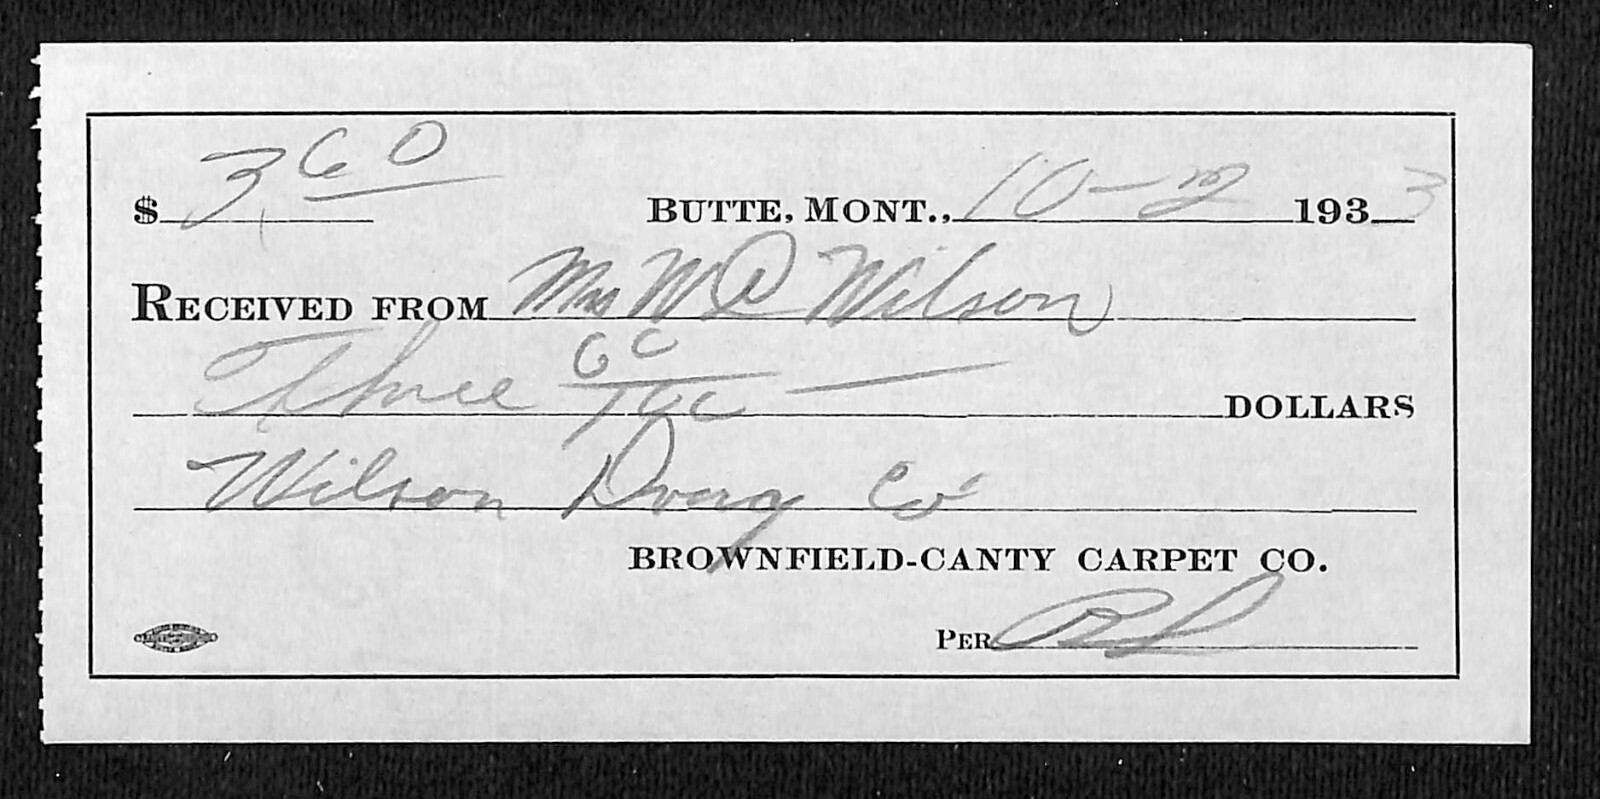 $ 3 60 BUTTE, MONT., 10-2 1933
RECEIVED FROM Mrs W D Wilson
Three 60/100 DOLLARS
Wilson Drug Co
BROWNFIELD-CANTY CARPET CO.
PER